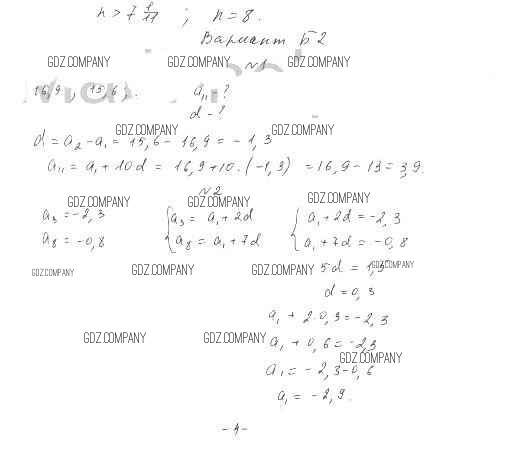 n > 7 1/17 ; n = 8.
Вариант Б2
GDZ.COMPANY GDZ.COMPANY GDZ.COMPANY
№1
16,9 ; 15,6 ; . a₁₁ - ?
d - ?
GDZ.COMPANY GDZ.COMPANY
d = a₂ - a₁ = 15,6 - 16,9 = -1,3
a₁₁ = a₁ + 10d = 16,9 + 10·(-1,3) = 16,9 - 13 = 3,9.
№2
GDZ.COMPANY GDZ.COMPANY GDZ.COMPANY
a₃ = -2,3 { a₃ = a₁ + 2d { a₁ + 2d = -2,3
a₈ = -0,8 { a₈ = a₁ + 7d { a₁ + 7d = -0,8
GDZ.COMPANY GDZ.COMPANY GDZ.COMPANY GDZ.COMPANY
5d = 1,5
d = 0,3
a₁ + 2·0,3 = -2,3
GDZ.COMPANY GDZ.COMPANY
a₁ + 0,6 = -2,3
GDZ.COMPANY
a₁ = -2,3 - 0,6
a₁ = -2,9.